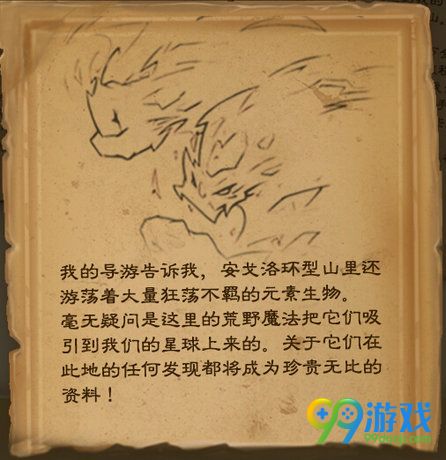 我的导游告诉我，安戈洛环型山里还
游荡着大量狂荡不羁的元素生物。
毫无疑问是这里的荒野魔法把它们吸
引到我们的星球上来的。关于它们在
此地的任何发现都将成为珍贵无比的
资料！
99游戏